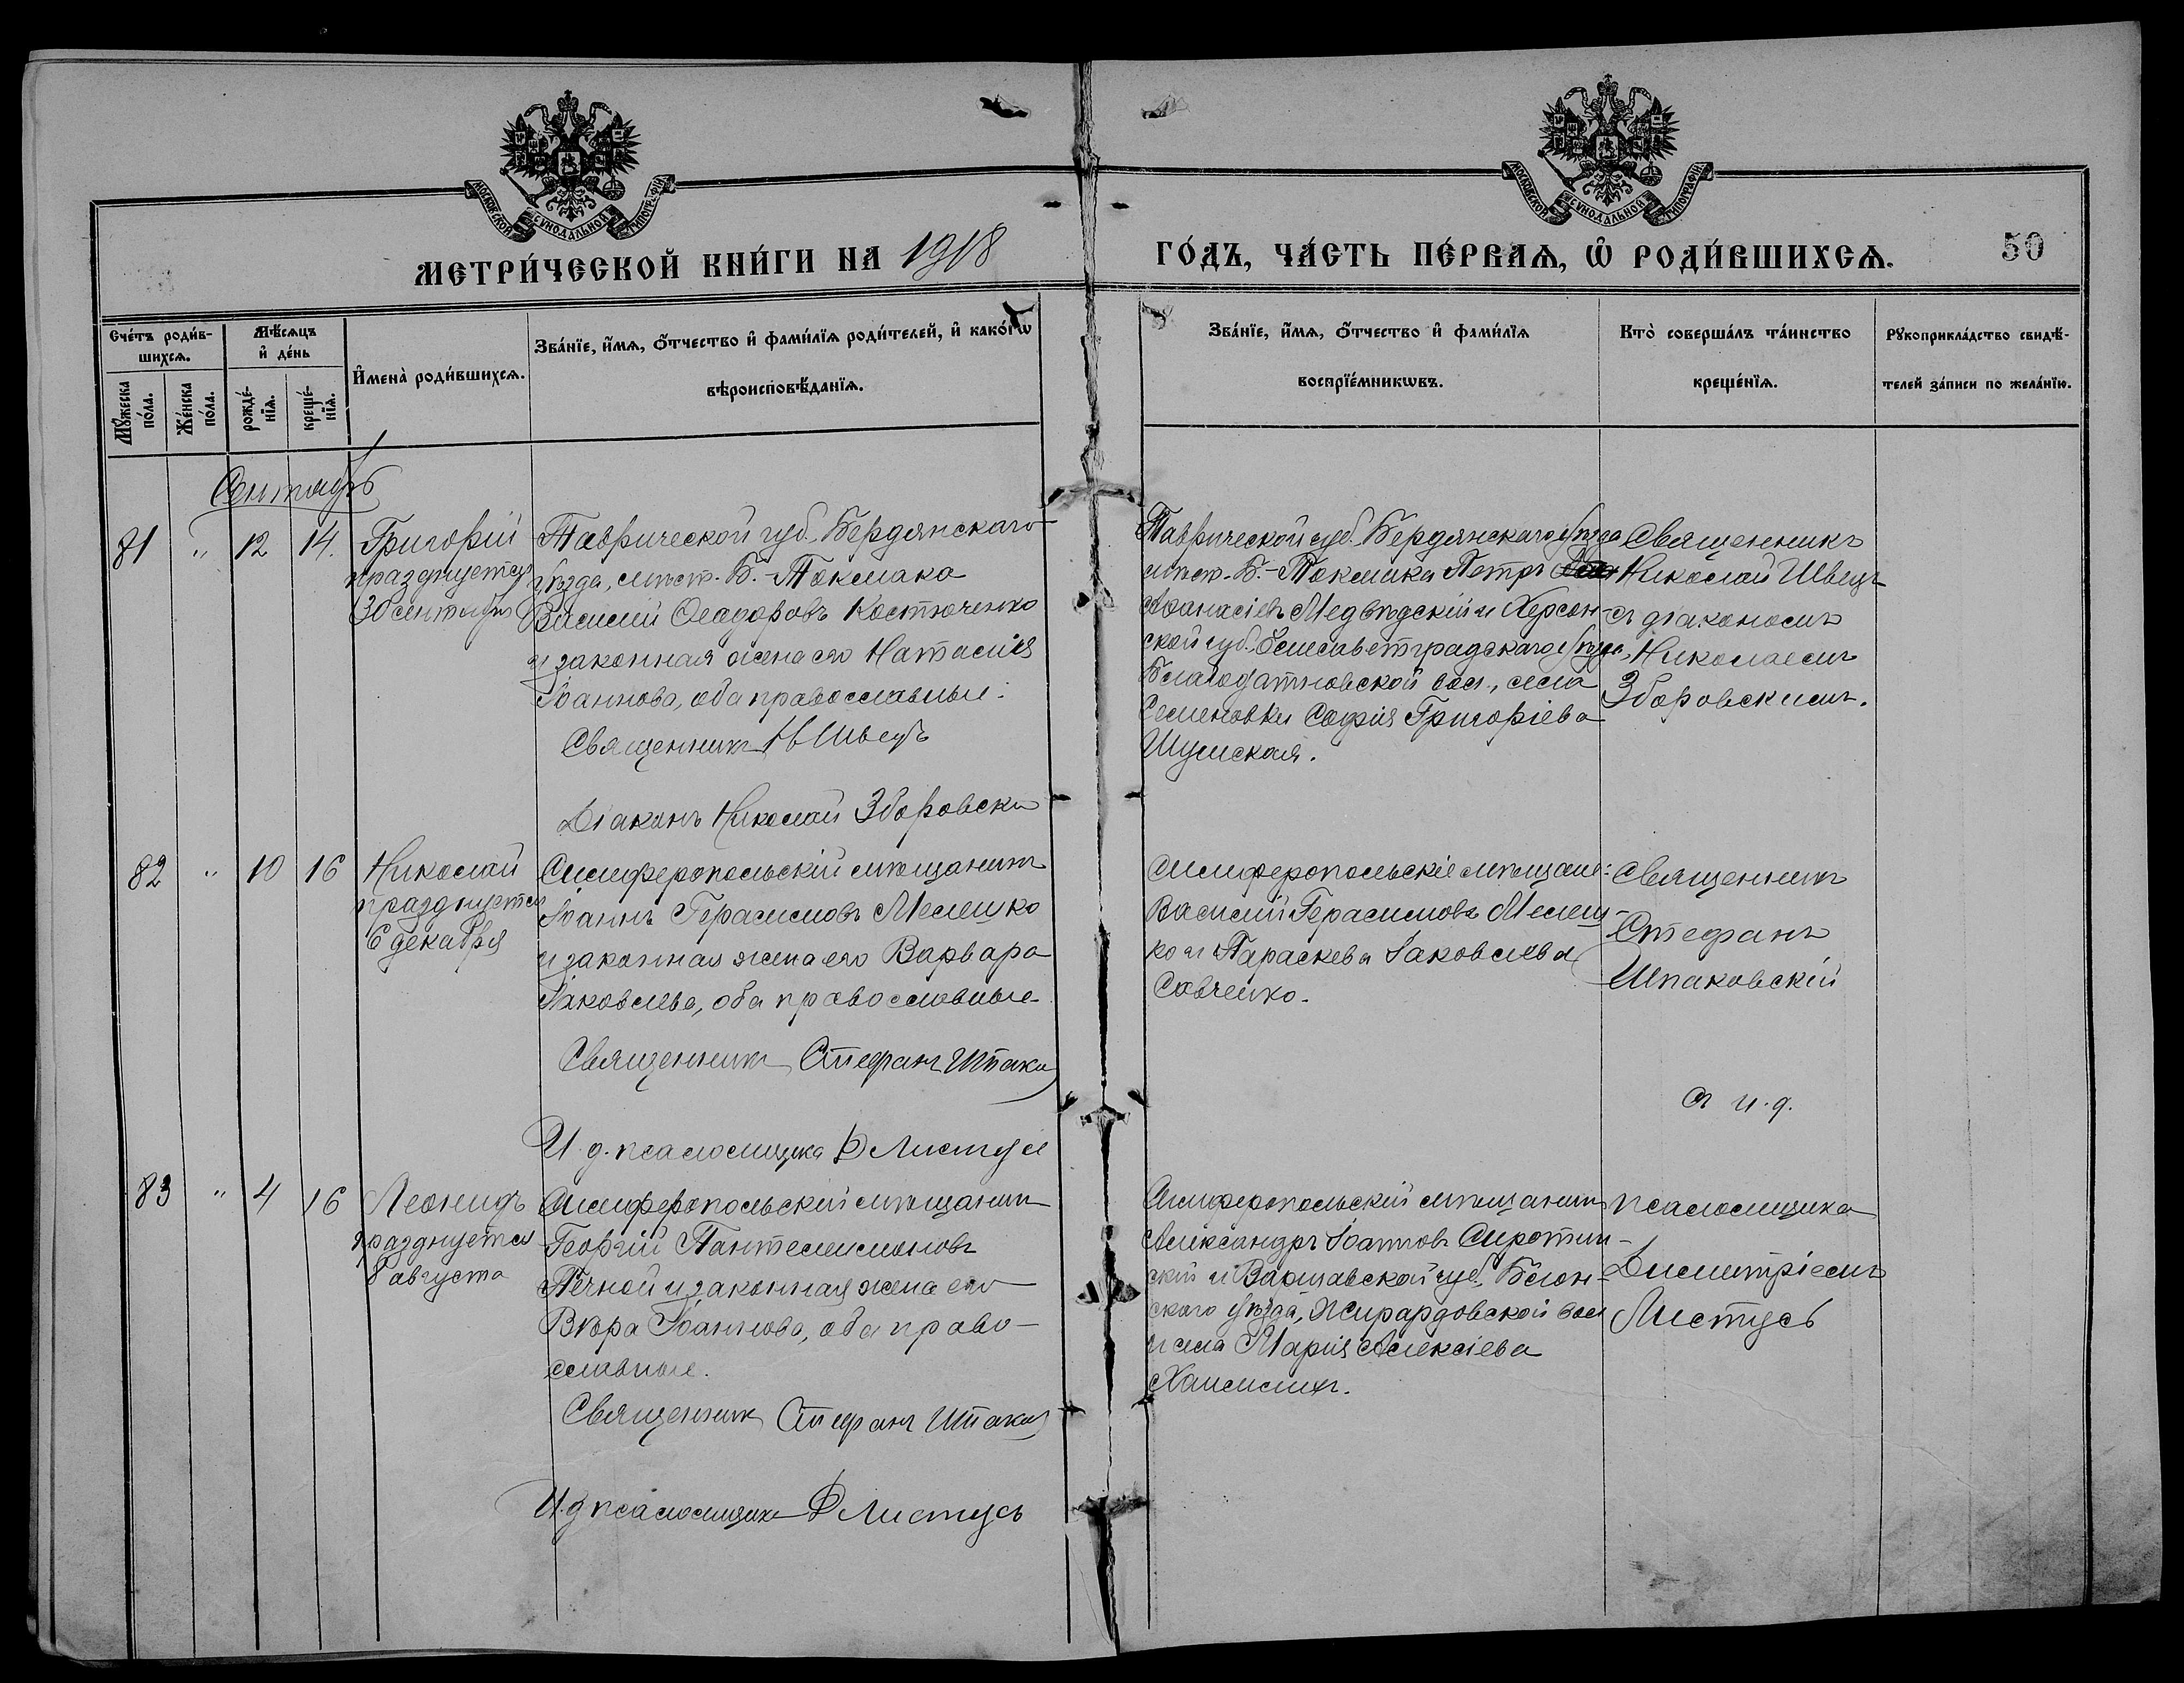 МОСКОВСКОЙ СѴНОДАЛЬНОЙ ТИПОГРАФІИ
МОСКОВСКОЙ СѴНОДАЛЬНОЙ ТИПОГРАФІИ
МЕТРИ́ЧЕСКОЙ КНИ́ГИ НА 1918
ГО́ДЪ, ЧА́СТЬ ПЕ́РВАѦ, Ѡ҆ РОДИ́ВШИХСѦ.
50
Сче́тъ роди́в-
шихсѧ.
Мꙋ́жеска по́ла.
Же́нска по́ла.
Мѣ́сѧцъ
и҆ де́нь
рожде́-
нїѧ.
креще́-
нїѧ.
И҆мена̀ роди́вшихсѧ.
Зва́нїе, и҆́мѧ, ѻ҆́тчество и҆ фами́лїѧ роди́телей, и҆ како́гѡ
вѣроисповѣ́данїѧ.
Зва́нїе, и҆́мѧ, ѻ҆́тчество и҆ фами́лїѧ
воспрїе́мникѡвъ.
Кто̀ соверша́лъ та́инство
креще́нїѧ.
Рꙋкоприкла́дство свидѣ́-
телей за́писи по жела́нїю.
Сентябрь
81 " 12 14.
Григорій
празднуется
30 сентября
Таврической губ. Бердянскаго
уѣзда, мѣст. Б.-Токмака
Василій Ѳеодоровъ Костюченко
и законная жена его Наталія
Іоаннова, оба православные.
Священникъ Н Швецъ
Діаконъ Николай Зборовски
Таврической губ. Бердянскаго уѣзда
мѣст. Б.-Токмака Петръ
Аѳанасіевъ Медвѣдскій и Херсон-
ской губ. Елисаветградскаго уѣзда,
Благодатновской вол., села
Семеновки Софія Григоріева
Шумская.
Священникъ
Николай Швецъ
съ діакономъ
Николаемъ
Зборовскимъ.
82 " 10 16
Николай
празднуется
6 декабря
Симферопольскій мѣщанинъ
Іоаннъ Герасимовъ Мелешко
и законная жена его Варвара
Іаковлева, оба православные
Священникъ Стефанъ Шпаков
И. д. псаломщика Д Листусъ
Симферопольскіе мѣщане:
Василій Герасимовъ Мелеш-
ко и Параскева Іаковлева
Савченко.
Священникъ
Стефанъ
Шпаковскій
съ и. д.
83 " 4 16
Леонидъ
празднуется
8 августа
Симферопольскій мѣщанинъ
Георгій Пантелеимоновъ
Печной и законная жена его
Вѣра Іоаннова, оба право-
славные.
Священникъ Стефанъ Шпаков
И. д псаломщика Д Листусъ
Симферопольскій мѣщанинъ
Александръ Іоанновъ Сиротин-
скій и Варшавской губ. Блон-
скаго уѣзда, Жирардовской вол
и села Марія Алексіева
псаломщика
Димитріемъ
Листусъ